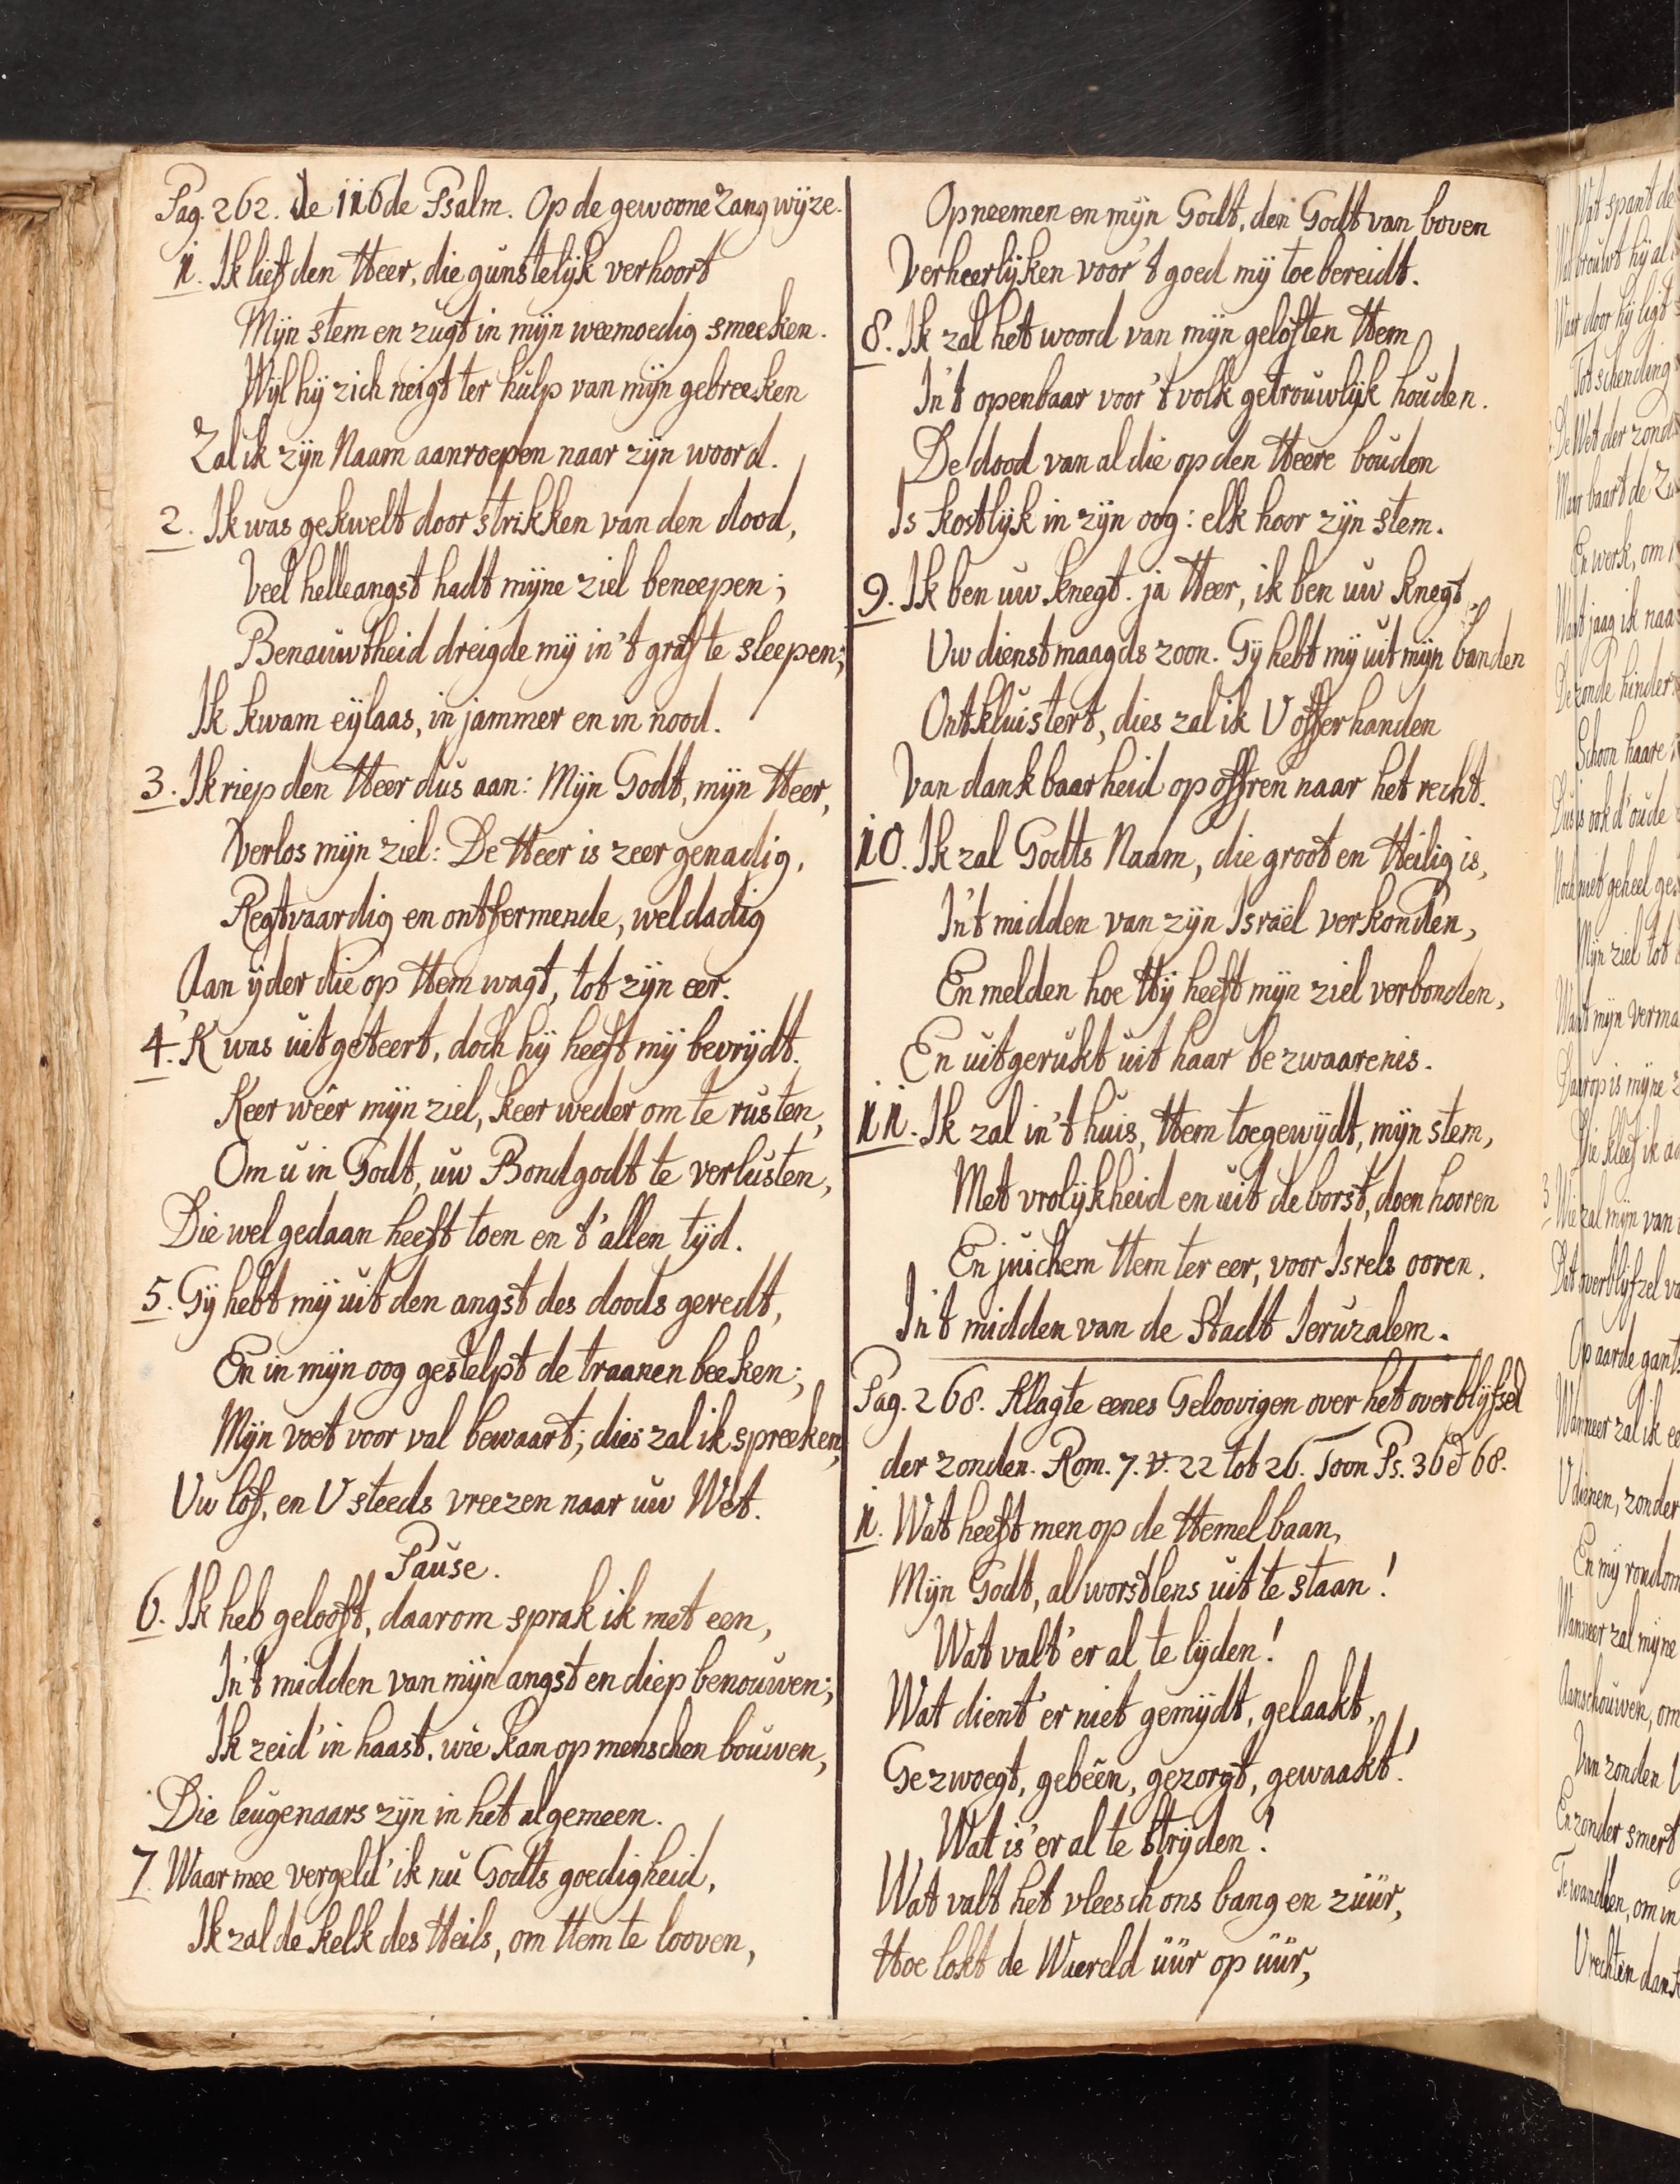 Pag. 262. De 116de Psalm. Op de gewoone Zangwijze.
1. Ik lief den Heer, die gunstelijk verhoort
Mijn stem en zugt in mijn weemoedig smeeken.
Wijl hij zich neigt ter hulp van mijn gebreeken
Zal ik zijn Naam aanroepen naar zijn woord.
2. Ik was gekwelt door strikken van den dood,
Veel helleangst hadt mijne ziel beneepen;
Benauwtheid dreigde mij in 't graf te sleepen;
Ik kwam eijlaas, in jammer en in nood.
3. Ik riep den Heer dus aan: Mijn Godt, mijn Heer,
Verlos mijn ziel: De Heer is zeer genadig,
Regtvaardig en ontfermende, weldadig
Aan ijder die op Hem wagt, tot zijn eer.
4. 'K was uitgeteert, doch hij heeft mij bevrijdt.
Keer wêer mijn ziel, keer weder om te rusten,
Om u in Godt, uw Bondgodt te verlusten,
Die wel gedaan heeft toen en t' allen tijd.
5. Gij hebt mij uit den angst des doods geredt,
En in mijn oog gestelpt de traanen beeken;
Mijn voet voor val bewaart; dies zal ik spreeken,
Uw lof, en U steeds vreezen naar uw Wet.
Pause.
6. Ik heb gelooft, daarom sprak ik met een,
In 't midden van mijn angst en diep benouwen;
Ik zeid' in haast, wie kan op menschen bouwen,
Die leugenaars zijn in het algemeen.
7. Waar mee vergeld' ik nu Godts goedigheid,
Ik zal de kelk des Heils, om Hem te looven,
Opneemen en mijn Godt, den Godt van boven
Verheerlijken voor 't goed mij toebereidt.
8. Ik zal het woord van mijn geloften Hem
In 't openbaar voor 't volk getrouwlijk houden.
De dood van al die op den Heere bouden
Is kostlijk in zijn oog: elk hoor zijn stem.
9. Ik ben uw knegt. ja Heer, ik ben uw knegt,
Uw dienstmaagds zoon. Gij hebt mij uit mijn banden
Ontkluistert, dies zal ik U offerhanden
Van dankbaarheid opoffren naar het recht.
10. Ik zal Godts Naam, die groot en Heilig is,
In 't midden van zijn Israël verkonden,
En melden hoe Hij heeft mijn ziel verbonden,
En uitgerukt uit haar bezwaarenis.
11. Ik zal in 't huis, Hem toegewijdt, mijn stem,
Met vrolijkheid en uit de borst, doen hooren
En juichem Hem ter eer, voor Isrels ooren.
In 't midden van de Stadt Ieruzalem.
Pag. 268. Klagte eenes Geloovigen over het overblijfsel
der zonden. Rom. 7. v. 22 tot 26. Toon Ps. 36 & 68.
1. Wat heeft men op de Hemelbaan,
Mijn Godt, al worstlens uit te staan!
Wat valt 'er al te lijden!
Wat dient 'er niet gemijdt, gelaakt,
Gezwoegt, gebêen, gezorgt, gewaakt!
Wat is 'er al te strijden!
Wat valt het vleesch ons bang en züür,
Hoe lokt de Waereld üür op üür,
Wat spant de
brouwt hij al
Waar door hij ligt
Tot schending
De Wet der zond
Maar baart de
En werk, om
Want jaag ik naa
De zonde hinder
Schoon haare
Dus is ook d' oude
Noch niet geheel ges
Mijn ziel tot
Want mijn verma
Daarop is mijne
Die kleef ik a
3. Wie zal mijn van
Dat overblijfzel va
Op aarde gants
Wanneer zal ik ee
U dienen, zonder
En mij rondom
Wanneer zal mijne
Aanschouwen, om
Van zonden
En zonder smert
Te wandlen, om in
U rechten dank